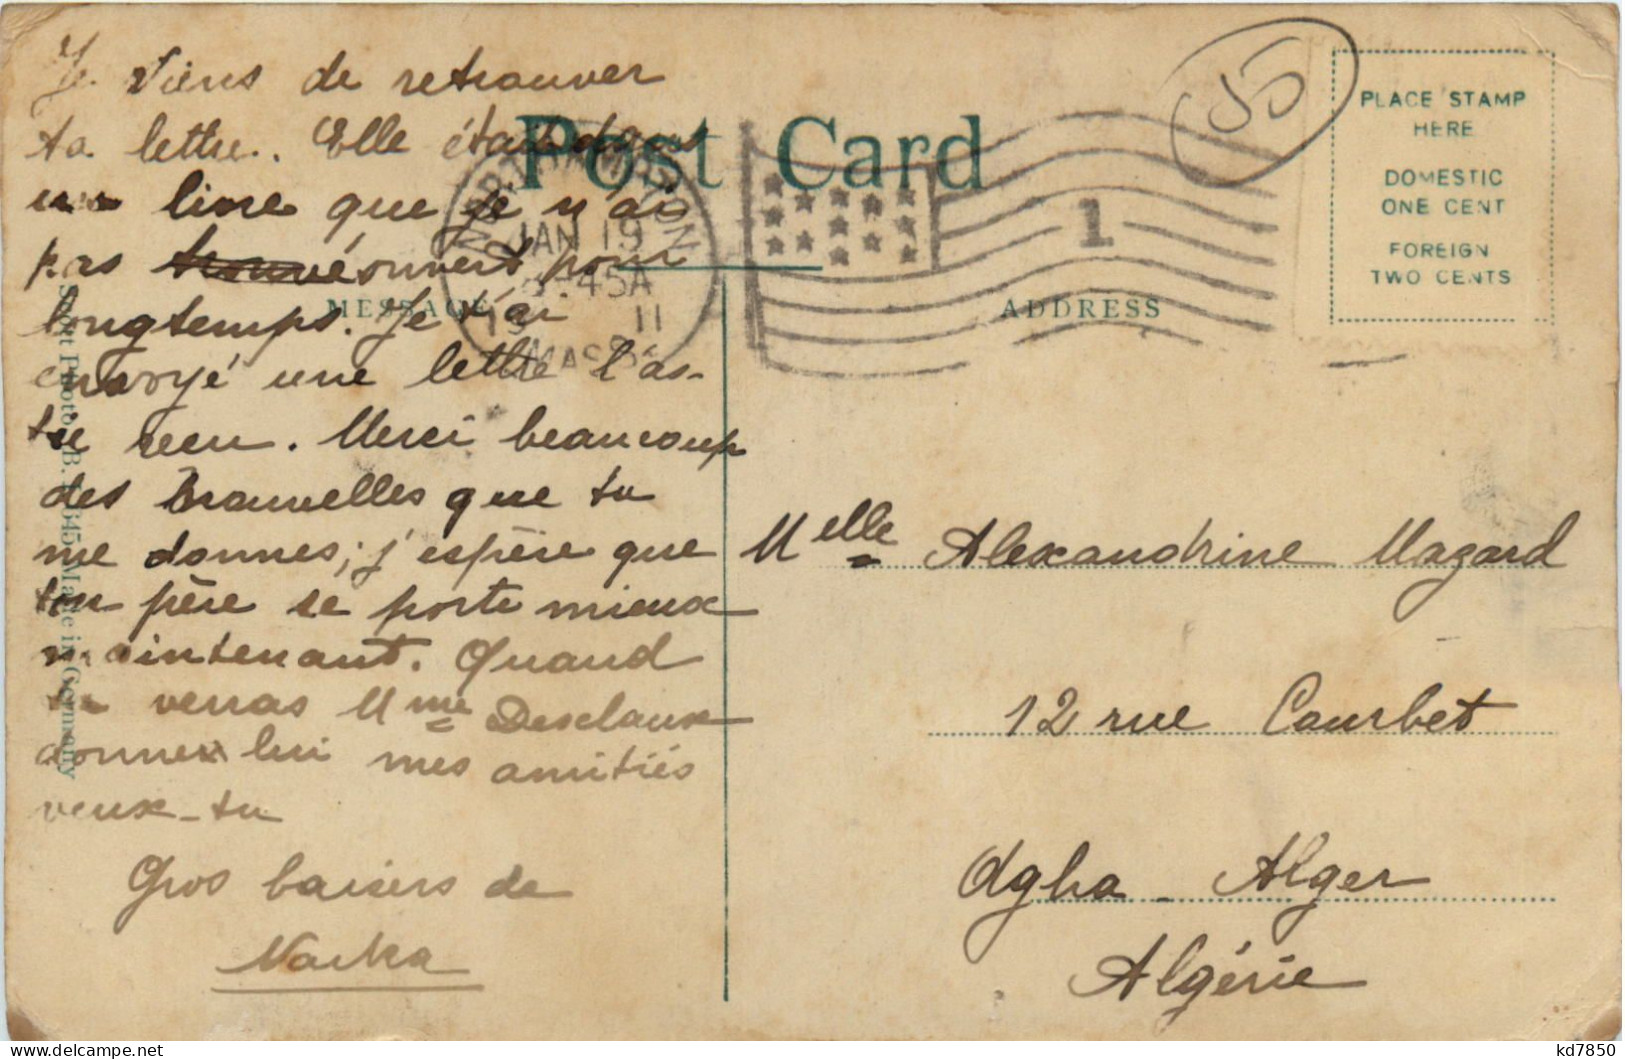 Je viens de retrouver
ta lettre. Elle était dans
un livre que je n'ai
pas trouvé ouvert pour
longtemps. Je t'ai
envoyé une lettre l'as-
tu reçu. Merci beaucoup
des nouvelles que tu
me donnes; j'espère que
ton père se porte mieux
maintenant. Quand
tu verras Mme Desclaux
donne lui mes amitiés
veux-tu
Gros baisers de
Post Card
MESSAGE
ADDRESS
NORTHAMPTON
JAN 19
45A
11
MASS.
1
55
PLACE STAMP
HERE
DOMESTIC
ONE CENT
FOREIGN
TWO CENTS
Melle Alexandrine Mazard
12 rue Courbet
Agha - Alger
Algérie
Made in Germany
kd7850